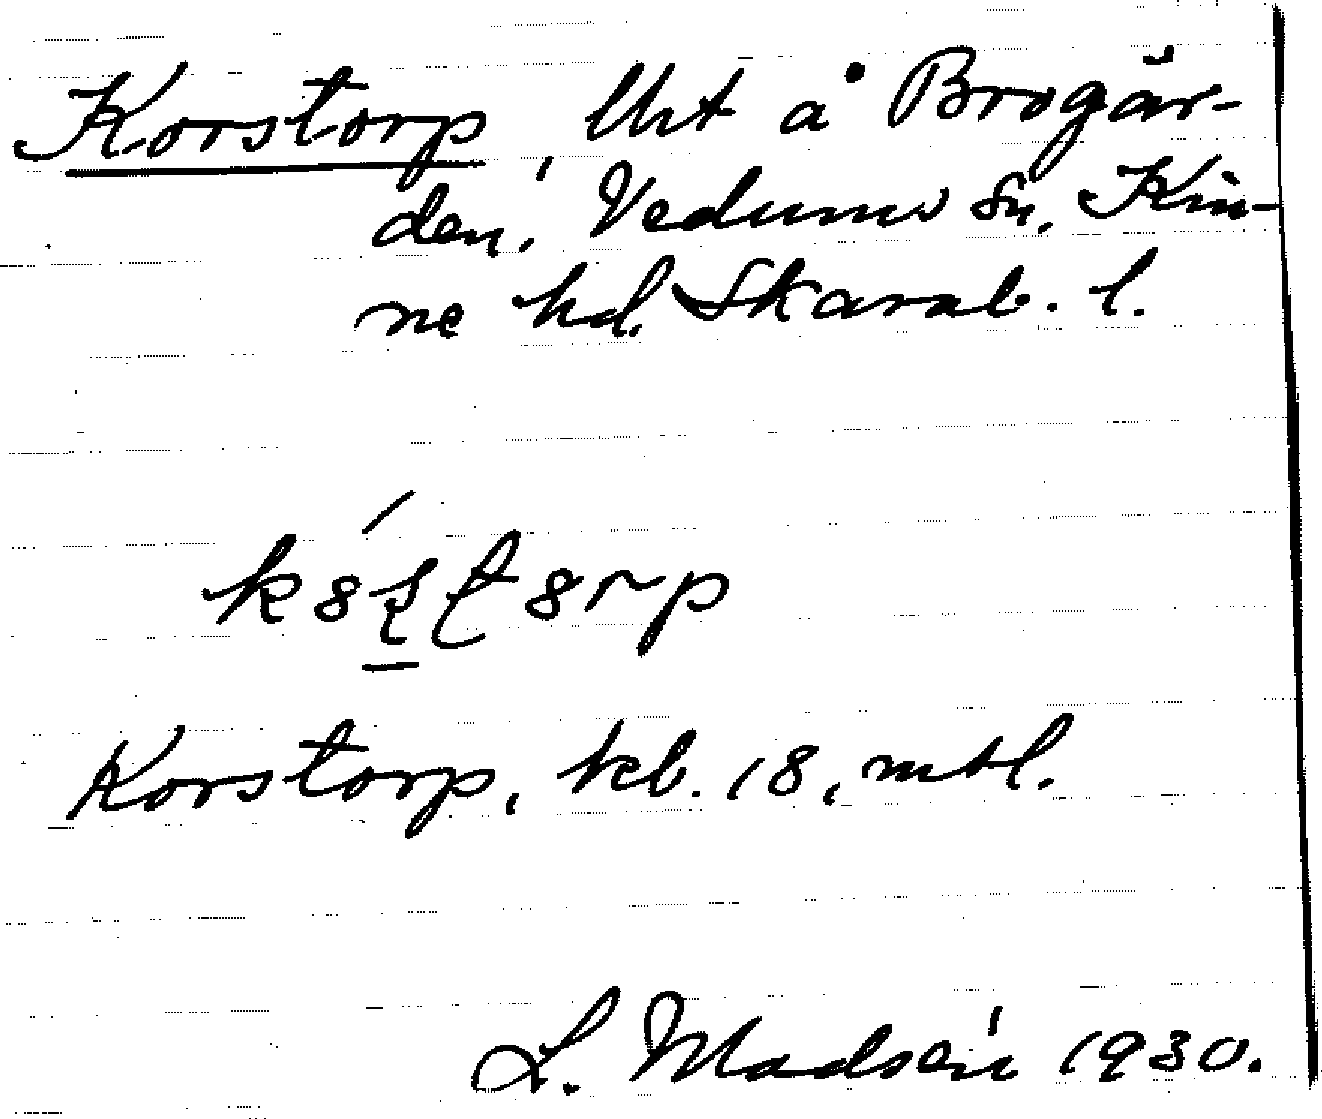 Korstorp, lht å Brogår-
den, Vedums sn, Kin-
ne hd. Skarab. l.
Korstorp, kb. 18, mtl.
L. Madsén 1930.